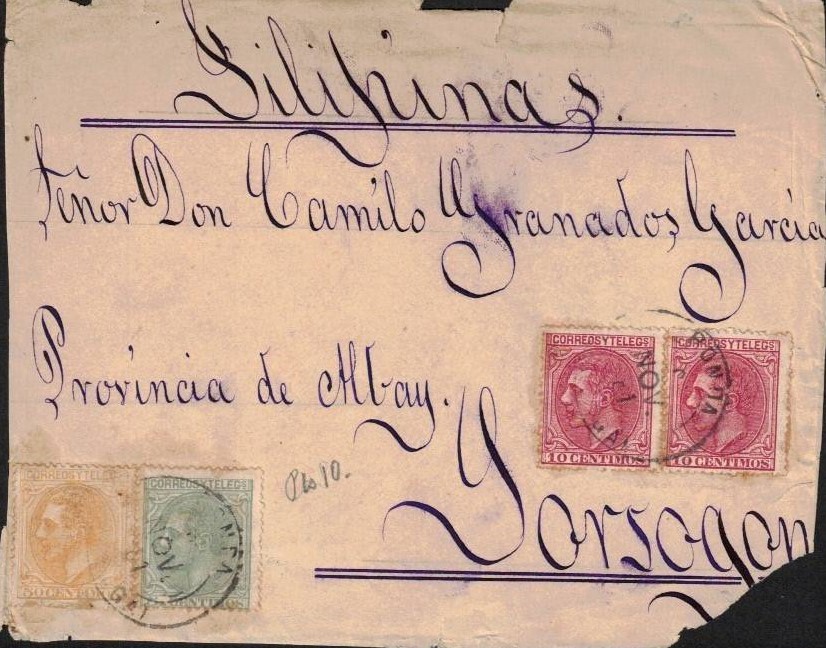 Filipinas.
Señor Don Camilo Granados, García
Provincia de Albay.
Sorsogon
CORREOS Y TELEGS
10 CENTIMOS
CORREOS Y TELEGS
10 CENTIMOS
Pts 10.
CORREOS Y TELEGS
50 CENTIMOS
CORREOS Y TELEGS
CENTIMOS
NOV.
NOV.